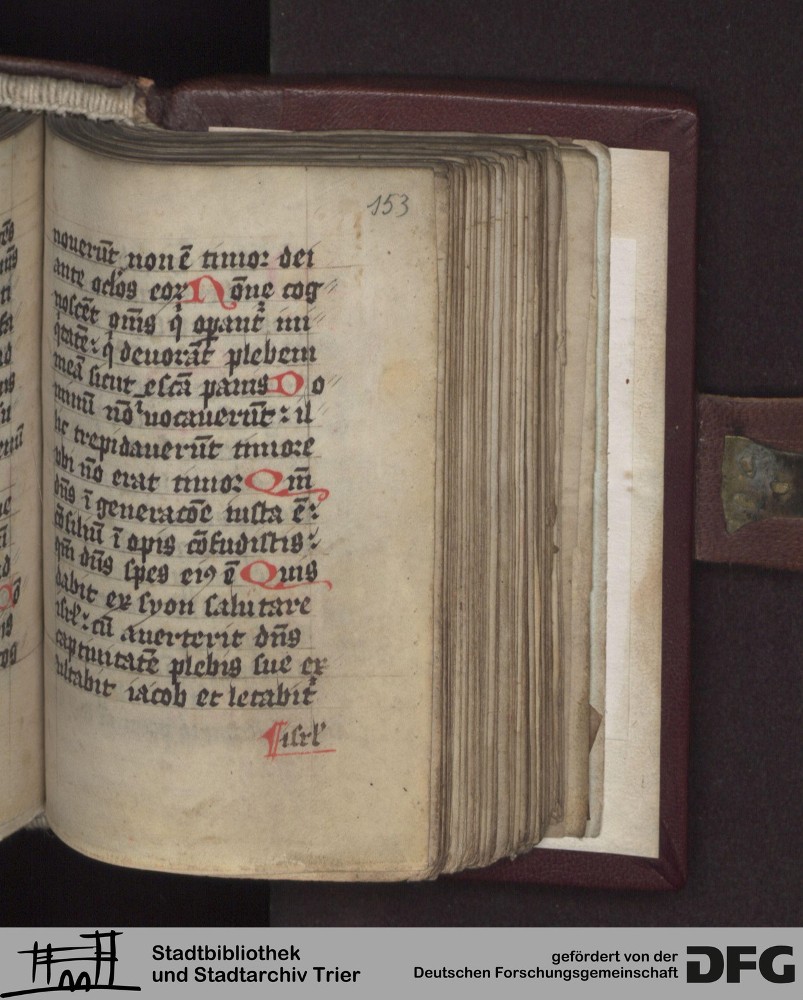 153
nouerūt non ē timor dei
ante oclos eorꝝ Nōne cog
noscēt om̄s q̇ opant᷑ ini
q̇tatē: q̇ deuorāt plebem
meā sicut escā panis Do
minū nō uocauerūt: il
lic trepidauerūt timore
vbi nō erat timor Qm̄
dn̄s ī generacōe iusta ē:
cōsiliū ī opis cōfudistis:
qm̄ dn̄s spes eiꝯ ē Quis
dabit ex syon salutare
isrl̕: cū auerterit dn̄s
captiuitatē plebis sue ex
ultabit iacob et letabit᷑
¶ isrl̕
Stadtbibliothek
und Stadtarchiv Trier
gefördert von der
Deutschen Forschungsgemeinschaft
DFG